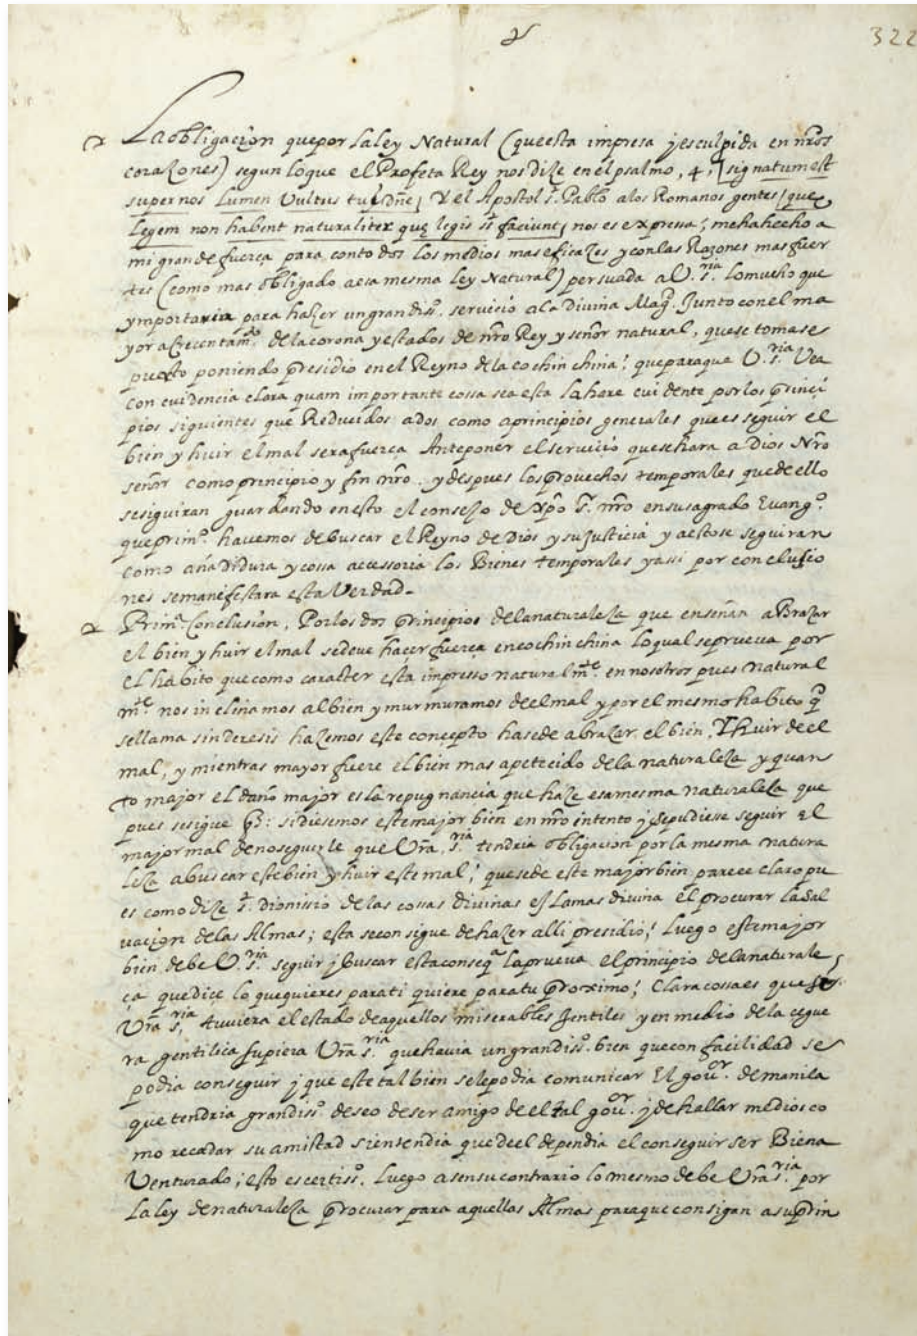 322
La obligacion que por la ley Natural (que esta impresa j esculpida en nr̃os
corazones) segun lo que el Profeta Rey nos dize en el psalmo, 4, signatum est
super nos Lumen Vultus tui dñe, Y el Apostol s. Pablo a los Romanos gentes que
Legem non habent naturaliter quę legis st̃ faciunt, nos es expresa; me ha hecho a
mi grande fuerça para con todos los medios mas eficazes y con las Razones mas fuer
tes (como mas obligado a esa mesma ley Natural) persuada a U. s.ria lo mucho que
ymportaria para hazer un grandiss.o servicio a la Divina Mag.d Junto con el ma
yor acrecentam.to de la corona y estados de nr̃o Rey y señor natural, que se tomase
puesto poniendo presidio en el Reyno de la cochinchina; que para que U. s.ria Vea
con evidencia clara quam importante cossa sea esta la hare evidente por los princi
pios siguientes que Reducidos a dos como a principios generales que es seguir el
bien y huir el mal sera fuerça Anteponer el servicio que se hara a Dios Nr̃o
señor como principio y fin nr̃o. y despues los provechos temporales que de ello
se siguiran guardando en esto el consejo de xp̃o s.r nr̃o en su sagrado Evang.o
que prim.o havemos de buscar el Reyno de Dios y su justicia y a esto se seguiran
como añadidura y cossa accessoria los Bienes temporales y assi por conclusio
nes se manifestara esta Verdad.
Prim.a Conclusion, Por los dos principios de la naturaleza que enseñan a Brazar
el bien y huir el mal se deve hacer fuerça en cochinchina lo qual se prueva por
el habito que como caracter esta impresso natural m.te en nosotros pues natural
m.te nos inclinamos al bien y murmuramos de el mal y por el mesmo habito q̃
se llama sinderesis hazemos este concepto ha se de abrazar el bien, Y huir de el
mal, y mientras mayor fuere el bien mas apetecido de la naturaleza y quan
to major el daño major es la repugnancia que haze esa mesma naturaleza que
pues se sigue q̃: si diesemos este major bien en nr̃o intento j se pudiesse seguir el
major mal de no seguirle que Vr̃a s.ria tendria obligacion por la mesma natura
leza a buscar este bien y huir este mal; que se de este major bien parece claro pu
es como dize s. dionissio de las cossas divinas es la mas divina el procurar la Sal
vacion de las Almas; esta se consigue de hazer alli presidio; Luego este major
bien debe U. s.ria seguir j buscar esta conseq.a la prueva el principio de la naturale
ça que dice lo que quieres para ti quiere para tu proximo; Clara cossa es que si
Vr̃a s.ria tuviera el estado de aquellos miserables Jentiles y en medio de la cegue
ra gentilica supiera Vr̃a s.ria que havia un grandiss.o bien que con facilidad se
podia conseguir j que este tal bien se le podia comunicar El gov.or de manila
que tendria grandiss.o deseo de ser amigo de el tal gov.or j de hallar medios co
mo recadar su amistad si entendia que de el dependia el conseguir ser Biena
Venturado; esto es certiss.o Luego a sensu contrario lo mesmo debe Vr̃a s.ria por
La ley de naturaleza procurar para aquellas Almas para que consigan a su prin